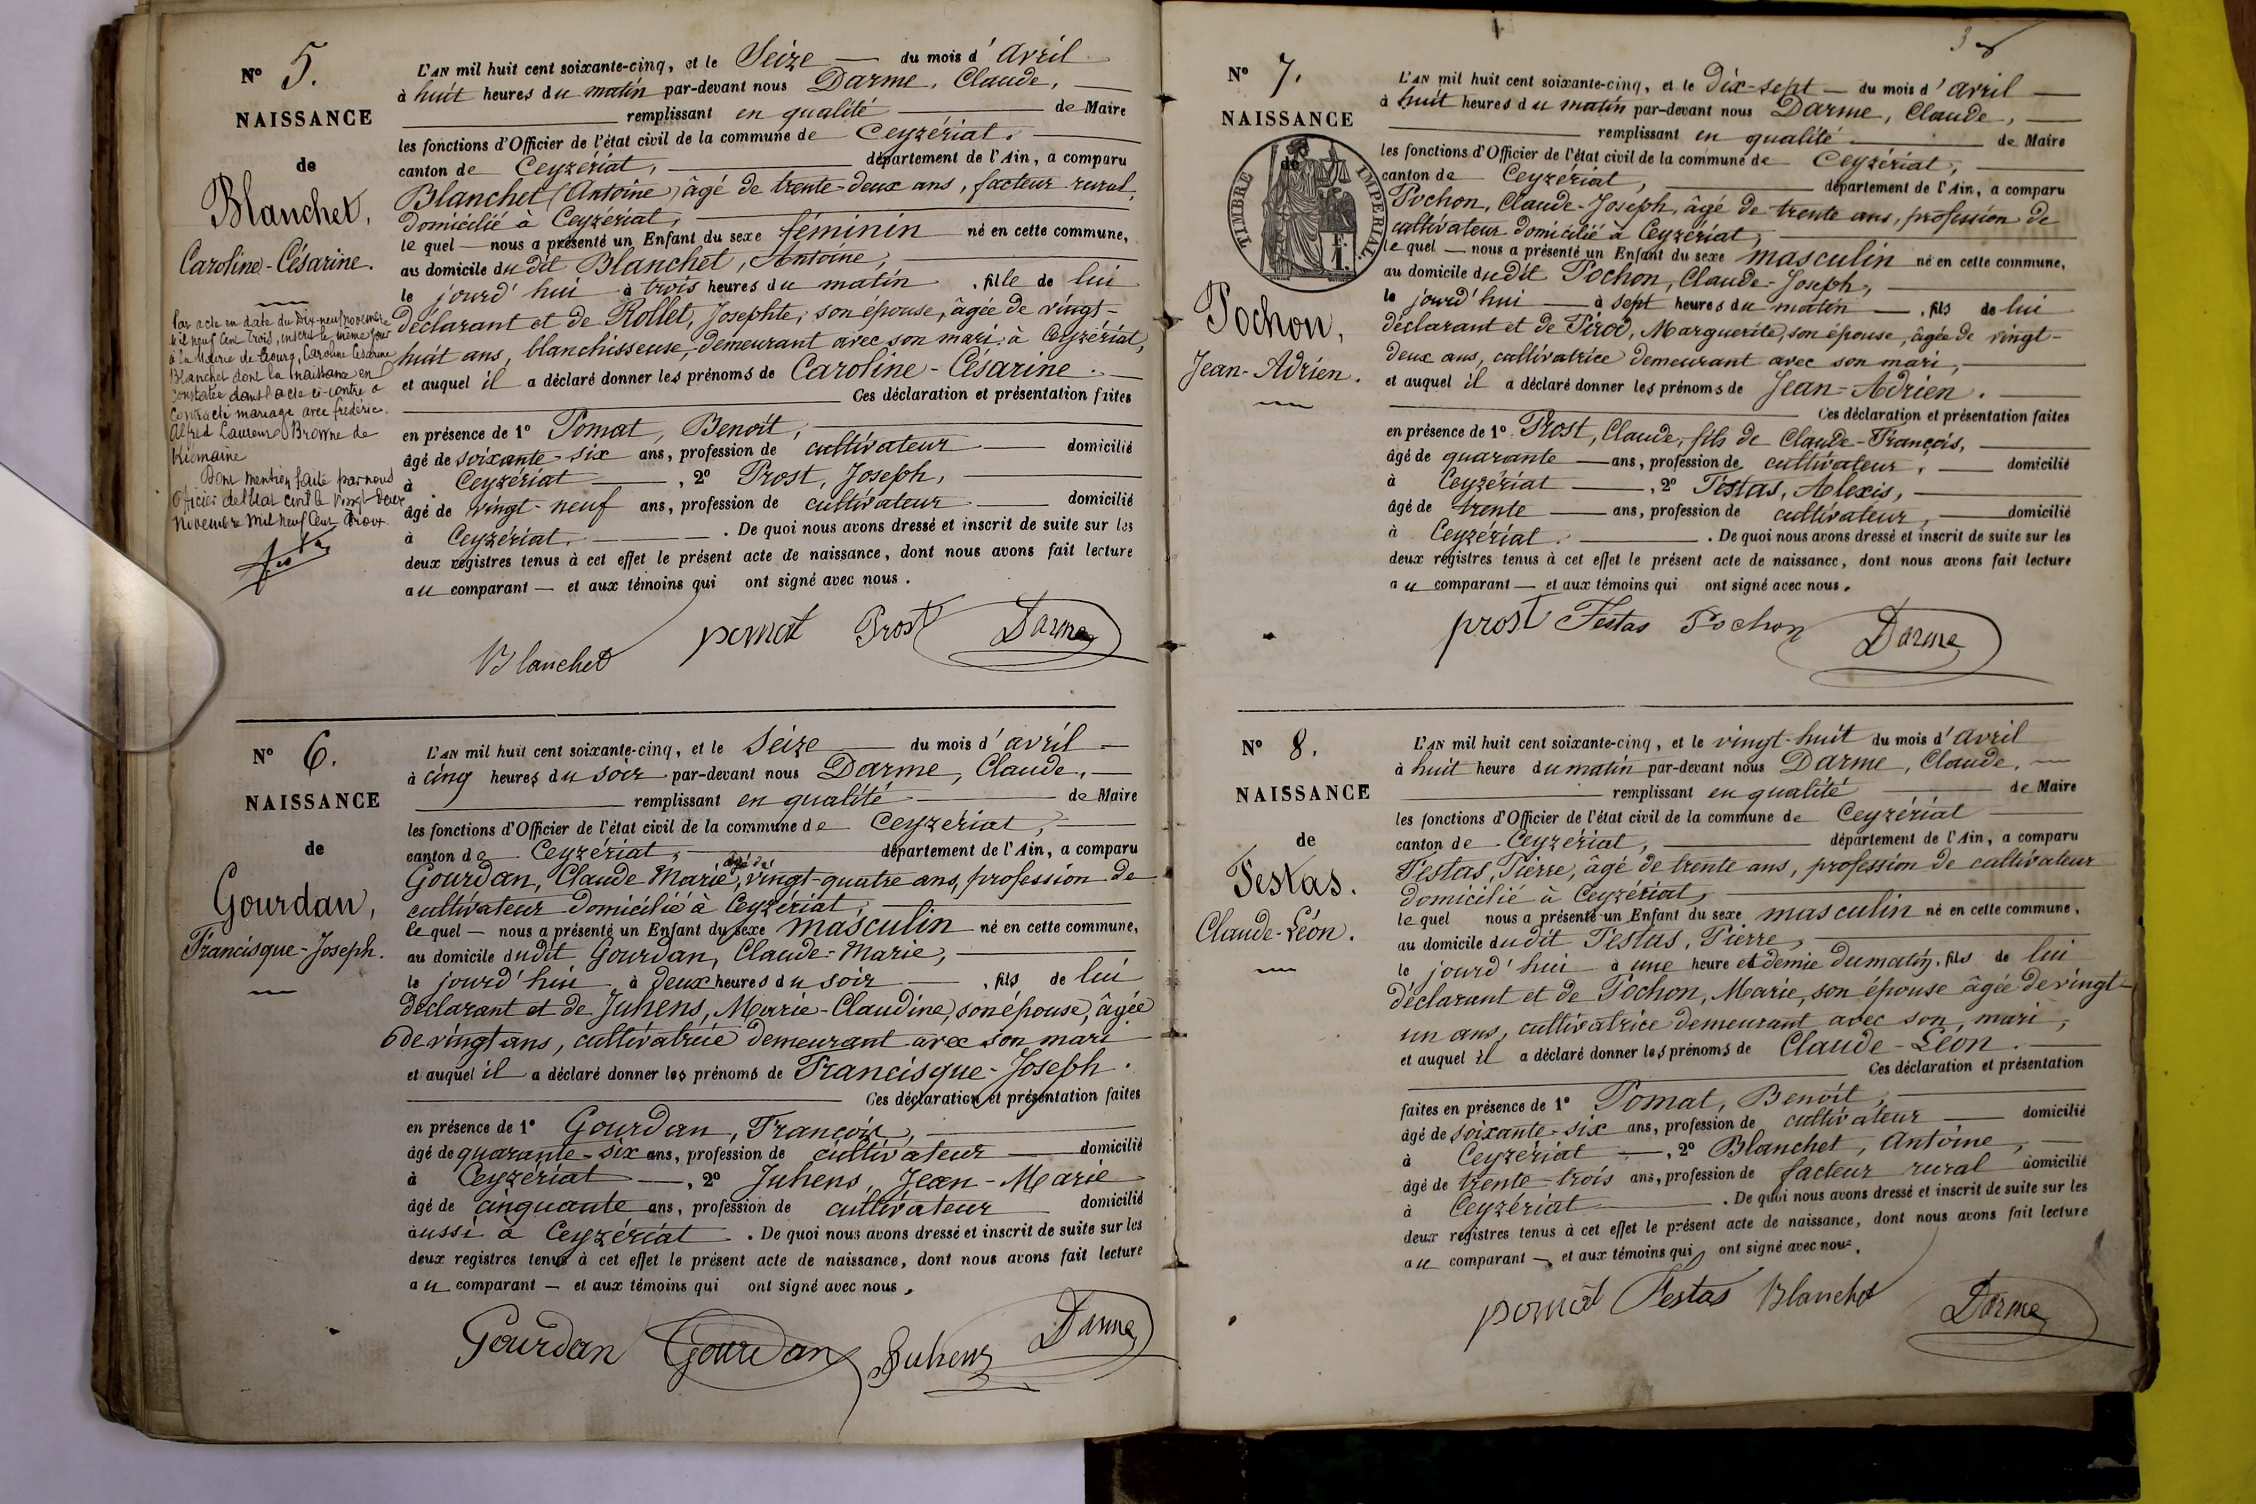 N° 5.
NAISSANCE
de
Blanchet,
Caroline-Césarine.
Par acte en date du Dix neuf novembre
mil neuf Cent trois, inscrit le même jour
à la Mairie de Bourg, Caroline Césarine
Blanchet dont la naissance en
constatée dans l'acte ci-contre a
contracté mariage avec frédéric
Alfred Laurence Browne de
Kiemaine
Dont mention faite par nous
Officier de l'état civil le vingt-deux
Novembre Mil neuf Cent Trois.
L'AN mil huit cent soixante-cinq, et le Seize du mois d'avril
à huit heures du matin par-devant nous Darme, Claude,
remplissant en qualité de Maire
les fonctions d'Officier de l'état civil de la commune de Ceyzériat,
canton de Ceyzériat, département de l'Ain, a comparu
Blanchet (Antoine) âgé de trente-deux ans, facteur rural,
domicilié à Ceyzériat,
lequel nous a présenté un Enfant du sexe féminin né en cette commune,
au domicile dudit Blanchet, Antoine,
le jourd'hui à trois heures du matin, fille de lui
déclarant et de Rollet, Josephte, son épouse, âgée de vingt-
huit ans, blanchisseuse, demeurant avec son mari à Ceyzériat,
et auquel il a déclaré donner les prénoms de Caroline-Césarine.
Ces déclaration et présentation faites
en présence de 1° Pomat, Benoît,
âgé de soixante-six ans, profession de cultivateur domicilié
à Ceyzériat, 2° Prost, Joseph,
âgé de vingt-neuf ans, profession de cultivateur domicilié
à Ceyzériat. De quoi nous avons dressé et inscrit de suite sur les
deux registres tenus à cet effet le présent acte de naissance, dont nous avons fait lecture
au comparant et aux témoins qui ont signé avec nous.
Blanchet pomat Prost Darme
N° 6.
NAISSANCE
de
Gourdan,
Francisque-Joseph.
L'AN mil huit cent soixante-cinq, et le Seize du mois d'avril
à cinq heures du soir par-devant nous Darme, Claude,
remplissant en qualité de Maire
les fonctions d'Officier de l'état civil de la commune de Ceyzériat,
canton de Ceyzériat, département de l'Ain, a comparu
Gourdan, Claude Marie, âgé de vingt-quatre ans, profession de
cultivateur domicilié à Ceyzériat,
lequel nous a présenté un Enfant du sexe masculin né en cette commune,
au domicile dudit Gourdan, Claude-Marie,
le jourd'hui à deux heures du soir, fils de lui
déclarant et de Juhens, Marie-Claudine, son épouse, âgée
de vingt ans, cultivatrice demeurant avec son mari
et auquel il a déclaré donner les prénoms de Francisque-Joseph.
Ces déclaration et présentation faites
en présence de 1° Gourdan, François,
âgé de quarante-six ans, profession de cultivateur domicilié
à Ceyzériat, 2° Juhens, Jean-Marie
âgé de cinquante ans, profession de cultivateur domicilié
aussi à Ceyzériat. De quoi nous avons dressé et inscrit de suite sur les
deux registres tenus à cet effet le présent acte de naissance, dont nous avons fait lecture
au comparant et aux témoins qui ont signé avec nous.
Gourdan Gourdan Juhens Darme
3
N° 7.
NAISSANCE
de
TIMBRE IMPERIAL
F. 1.
Pochon,
Jean-Adrien.
L'AN mil huit cent soixante-cinq, et le dix-sept du mois d'avril
à huit heures du matin par-devant nous Darme, Claude,
remplissant en qualité de Maire
les fonctions d'Officier de l'état civil de la commune de Ceyzériat,
canton de Ceyzériat, département de l'Ain, a comparu
Pochon, Claude-Joseph, âgé de trente ans, profession de
cultivateur domicilié à Ceyzériat,
lequel nous a présenté un Enfant du sexe masculin né en cette commune,
au domicile dudit Pochon, Claude-Joseph,
le jourd'hui à sept heures du matin, fils de lui
déclarant et de Pirod, Marguerite, son épouse, âgée de vingt-
deux ans, cultivatrice demeurant avec son mari,
et auquel il a déclaré donner les prénoms de Jean-Adrien.
Ces déclaration et présentation faites
en présence de 1° Prost, Claude, fils de Claude-François,
âgé de quarante ans, profession de cultivateur, domicilié
à Ceyzériat, 2° Testas, Alexis,
âgé de trente ans, profession de cultivateur, domicilié
à Ceyzériat. De quoi nous avons dressé et inscrit de suite sur les
deux registres tenus à cet effet le présent acte de naissance, dont nous avons fait lecture
au comparant et aux témoins qui ont signé avec nous.
prost Testas Pochon Darme
N° 8.
NAISSANCE
de
Testas.
Claude-Léon.
L'AN mil huit cent soixante-cinq, et le vingt-huit du mois d'avril
à huit heure du matin par-devant nous Darme, Claude,
remplissant en qualité de Maire
les fonctions d'Officier de l'état civil de la commune de Ceyzériat
canton de Ceyzériat, département de l'Ain, a comparu
Testas, Pierre, âgé de trente ans, profession de cultivateur
domicilié à Ceyzériat,
lequel nous a présenté un Enfant du sexe masculin né en cette commune,
au domicile dudit Testas, Pierre,
le jourd'hui à une heure et demie du matin, fils de lui
déclarant et de Pochon, Marie, son épouse âgée de vingt-
un ans, cultivatrice demeurant avec son mari,
et auquel il a déclaré donner les prénoms de Claude-Léon.
Ces déclaration et présentation
faites en présence de 1° Pomat, Benoît,
âgé de soixante-six ans, profession de cultivateur domicilié
à Ceyzériat, 2° Blanchet, Antoine,
âgé de trente-trois ans, profession de facteur rural domicilié
à Ceyzériat. De quoi nous avons dressé et inscrit de suite sur les
deux registres tenus à cet effet le présent acte de naissance, dont nous avons fait lecture
au comparant et aux témoins qui ont signé avec nous.
pomat Testas Blanchet Darme